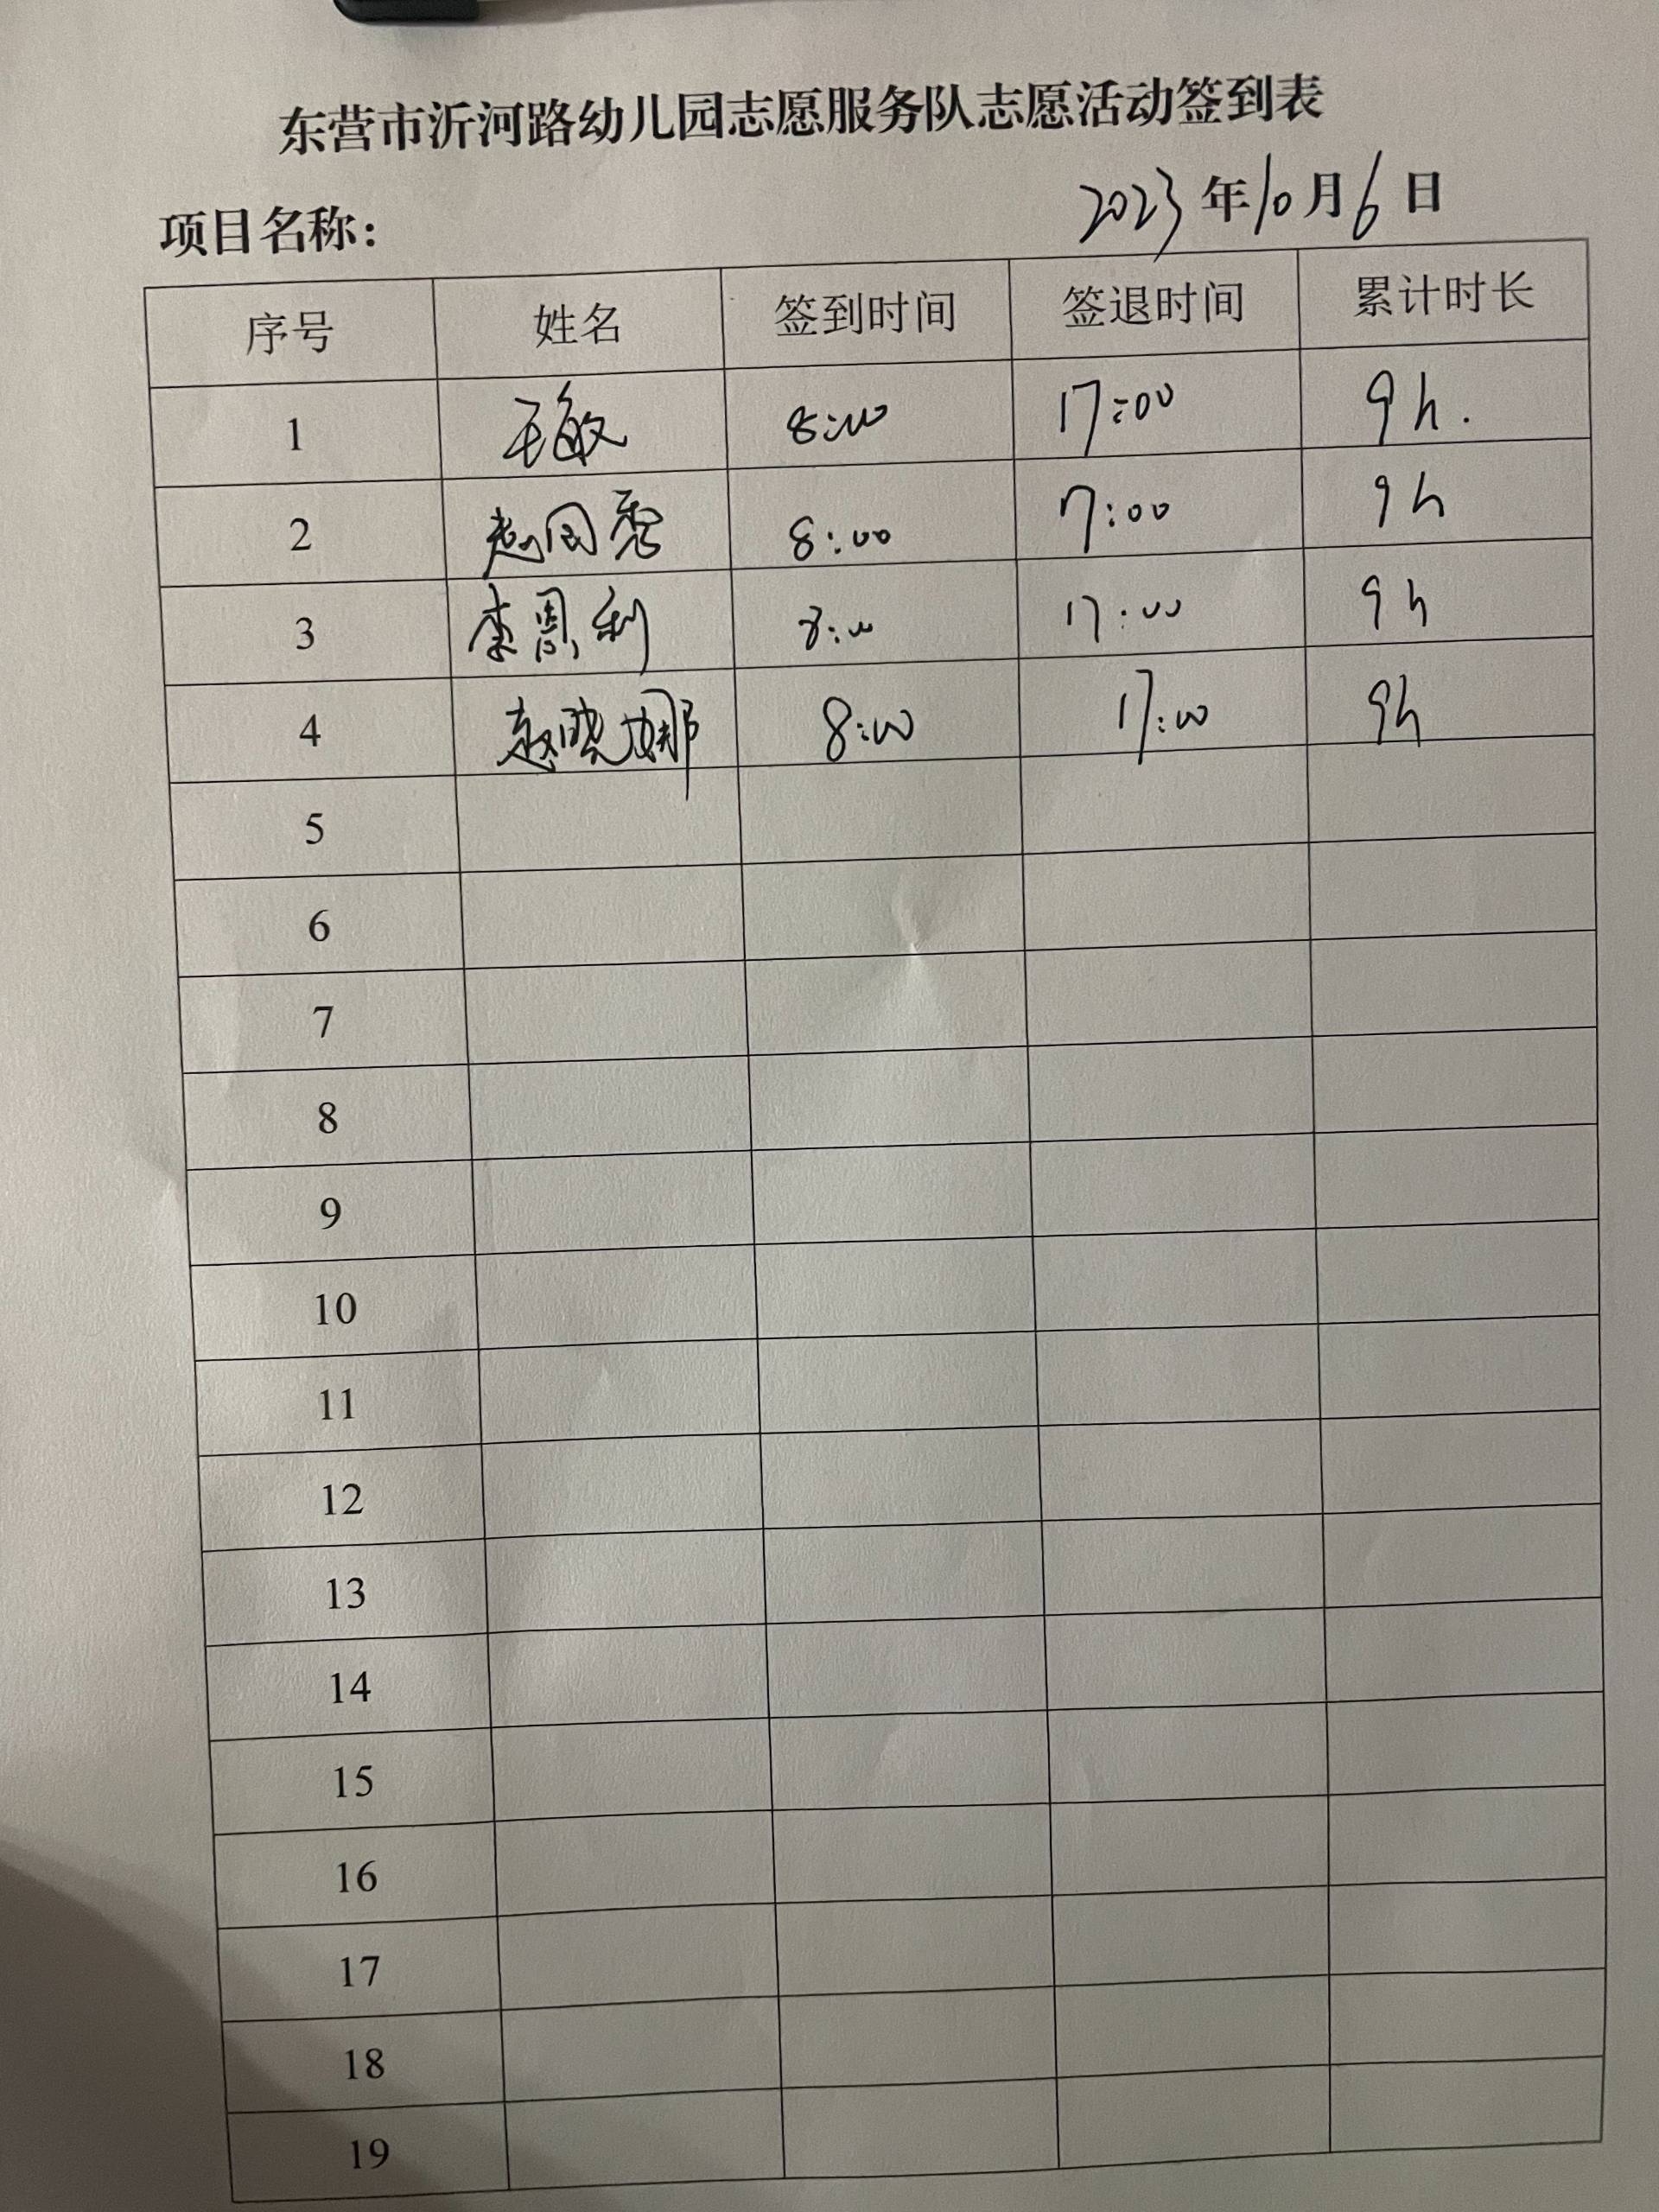 东营市沂河路幼儿园志愿服务队志愿活动签到表
项目名称： 2023年10月6日
序号 姓名 签到时间 签退时间 累计时长
1 王敏 8:00 17:00 9h.
2 赵国秀 8:00 17:00 9h
3 李周利 8:00 17:00 9h
4 赵晓娜 8:00 17:00 9h
5
6
7
8
9
10
11
12
13
14
15
16
17
18
19